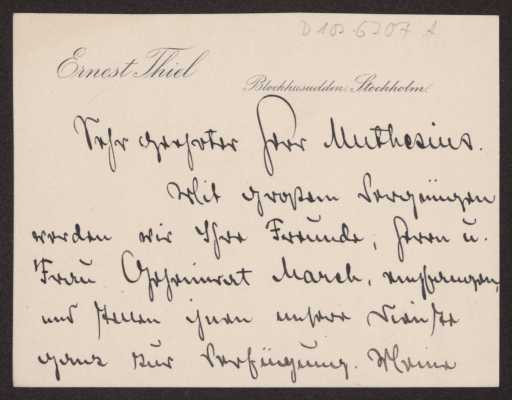 D 102-6207 A
Ernest Thiel
Blockhusudden, Stockholm.
Sehr geehrter Herr Muthesius.
Mit großem Vergnügen
werden wir Ihre Freunde, Herrn u.
Frau Geheimrat March, empfangen,
und stellen ihnen unsere Dienste
ganz zur Verfügung. Meine